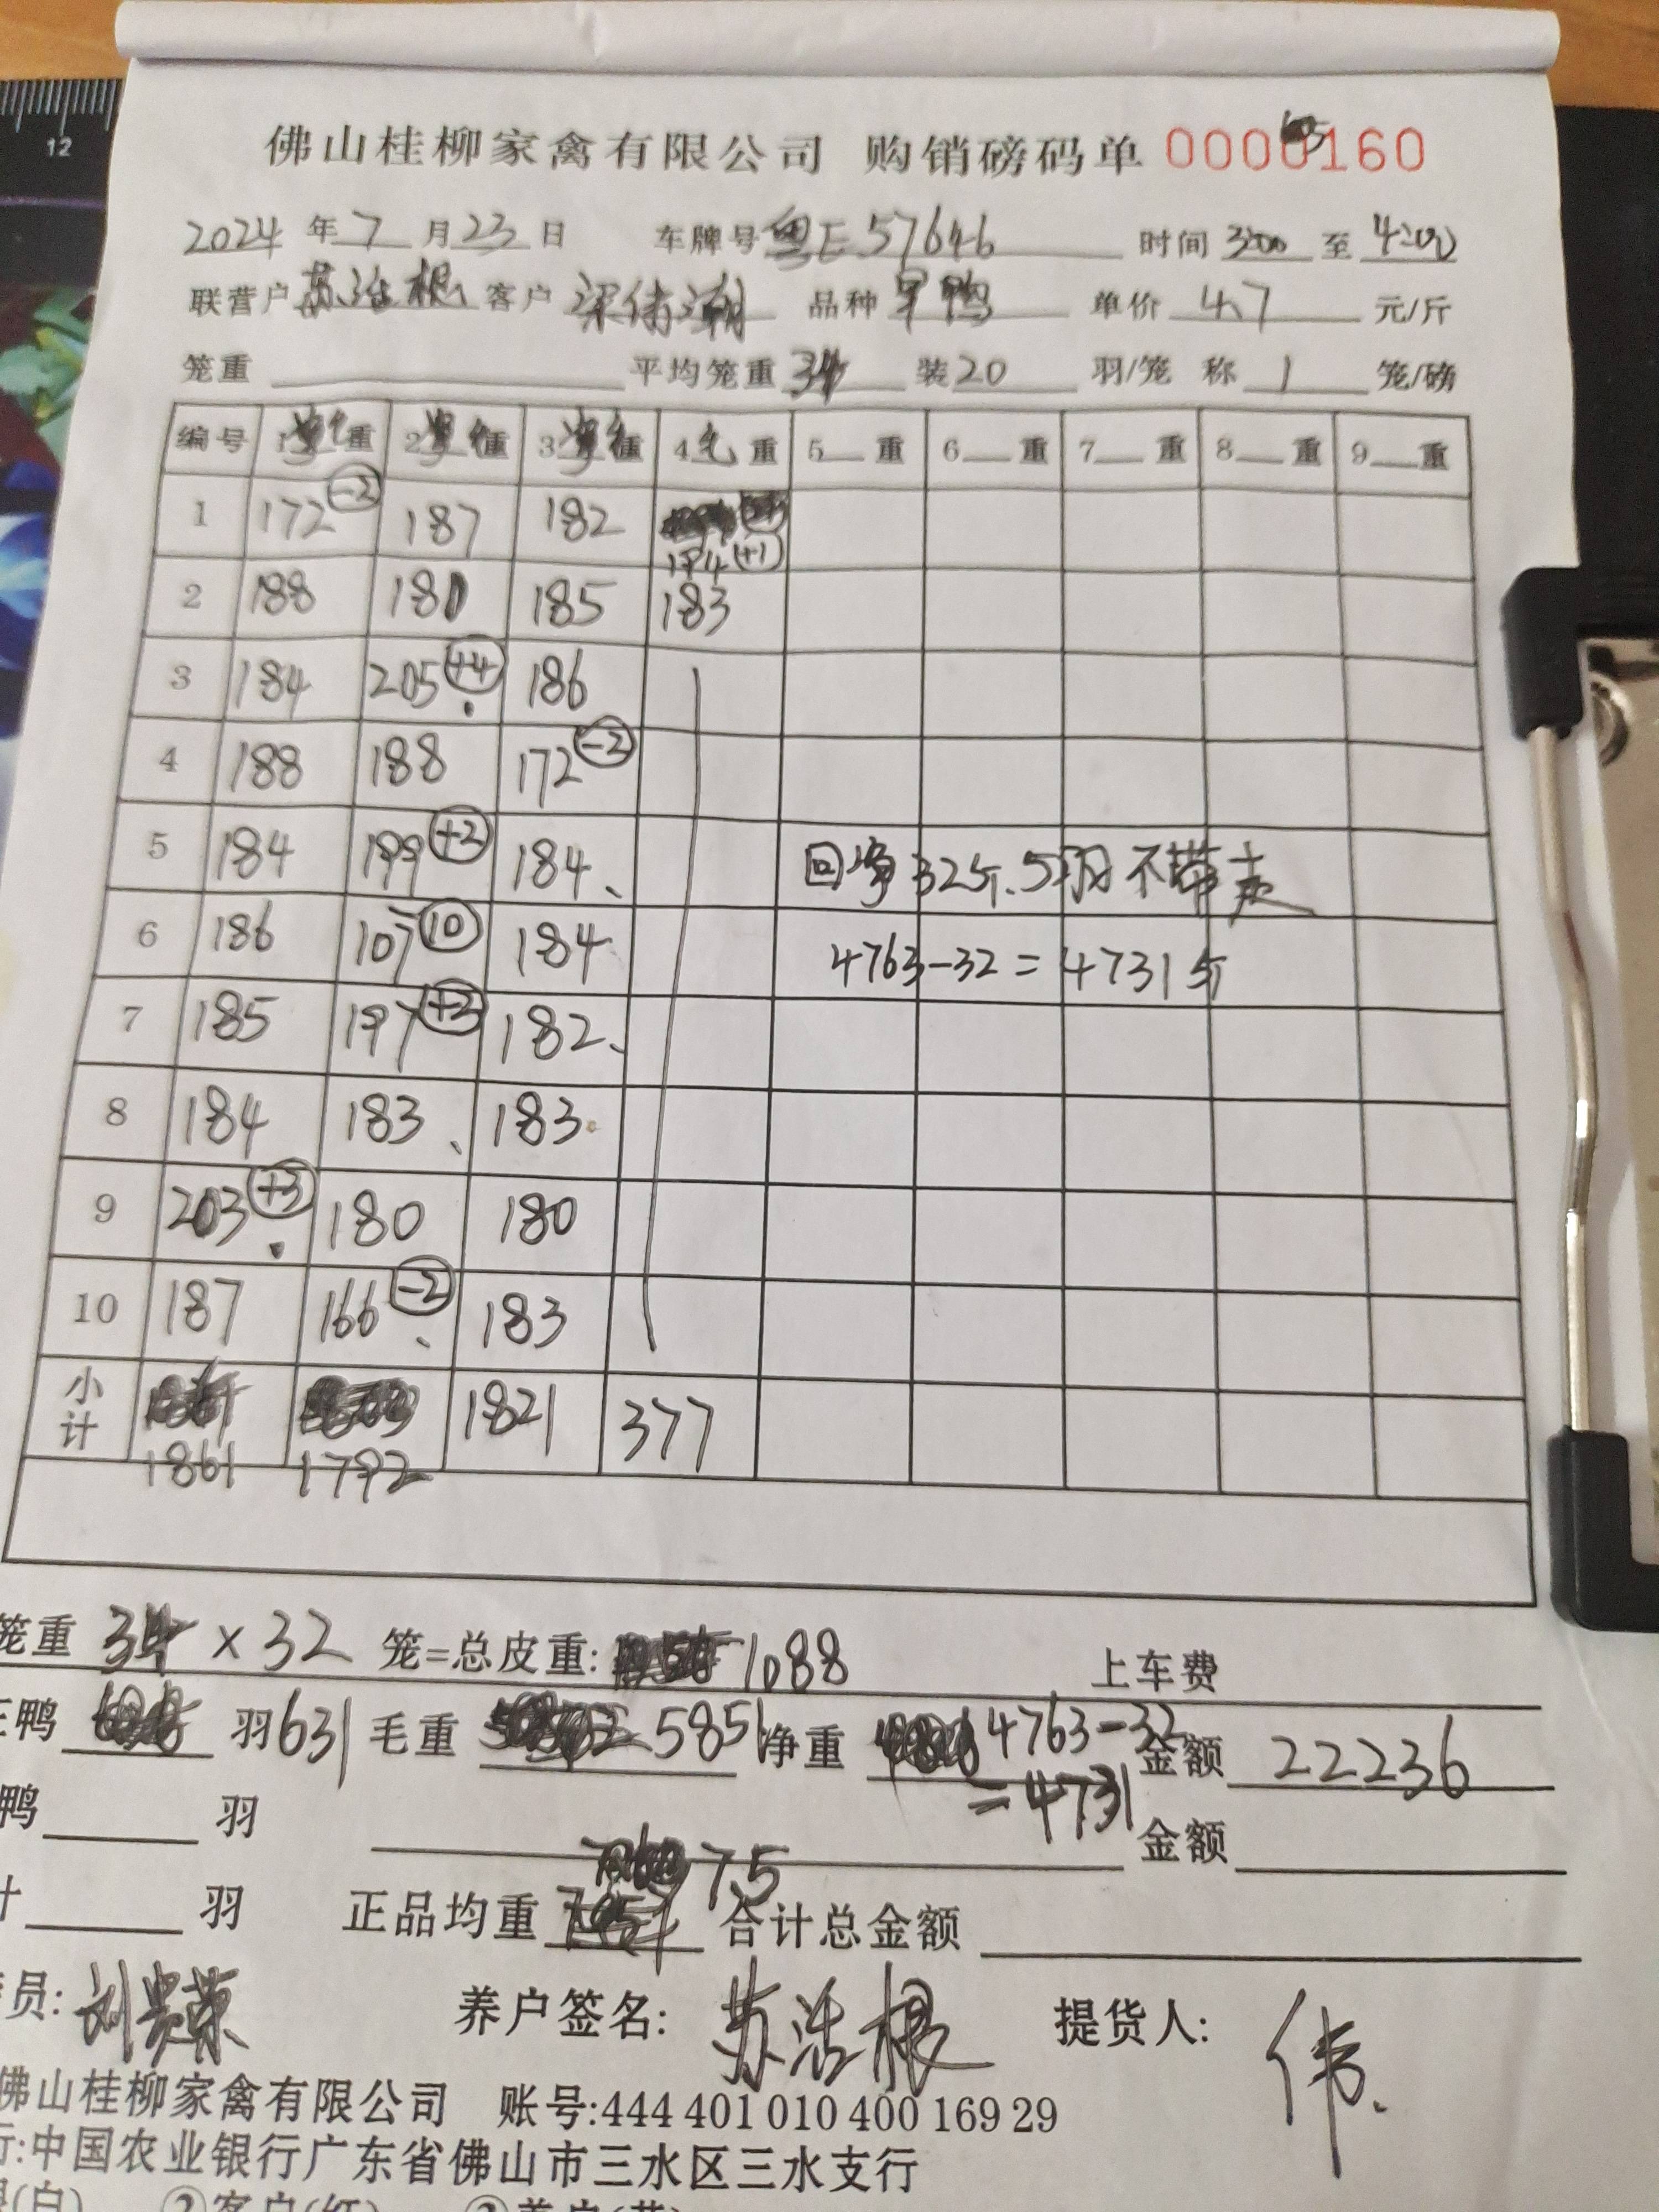 12
佛山桂柳家禽有限公司 购销磅码单 0000160
2024 年 7 月 23 日 车牌号 粤E 57646 时间 3:00 至 4:00
联营户 苏活根 客户 梁伟潮 品种 旱鸭 单价 4.7 元/斤
笼重 平均笼重 34 装 20 羽/笼 称 1 笼/磅
编号 1 重 2 重 3 重 4 毛 重 5 重 6 重 7 重 8 重 9 重
1 172 -2 187 182 194 +1
2 188 181 185 183
3 184 205 +4 186
4 188 188 172 -2
5 184 199 +2 184 回净32斤.5羽不带走
6 186 107 10 184 4763-32=4731斤
7 185 197 +3 182
8 184 183 183
9 203 +3 180 180
10 187 166 -2 183
小计 1861 1792 1821 377
笼重 34 × 32 笼=总皮重: 1088 上车费
鸭 羽 631 毛重 5851 净重 4763-32 金额 22236
=4731
鸭 羽 金额
计 羽 正品均重 7.5 合计总金额
员: 刘贵荣 养户签名: 苏活根 提货人: 伟
佛山桂柳家禽有限公司 账号:444 401 010 400 169 29
行:中国农业银行广东省佛山市三水区三水支行
(白) ②客户(红)